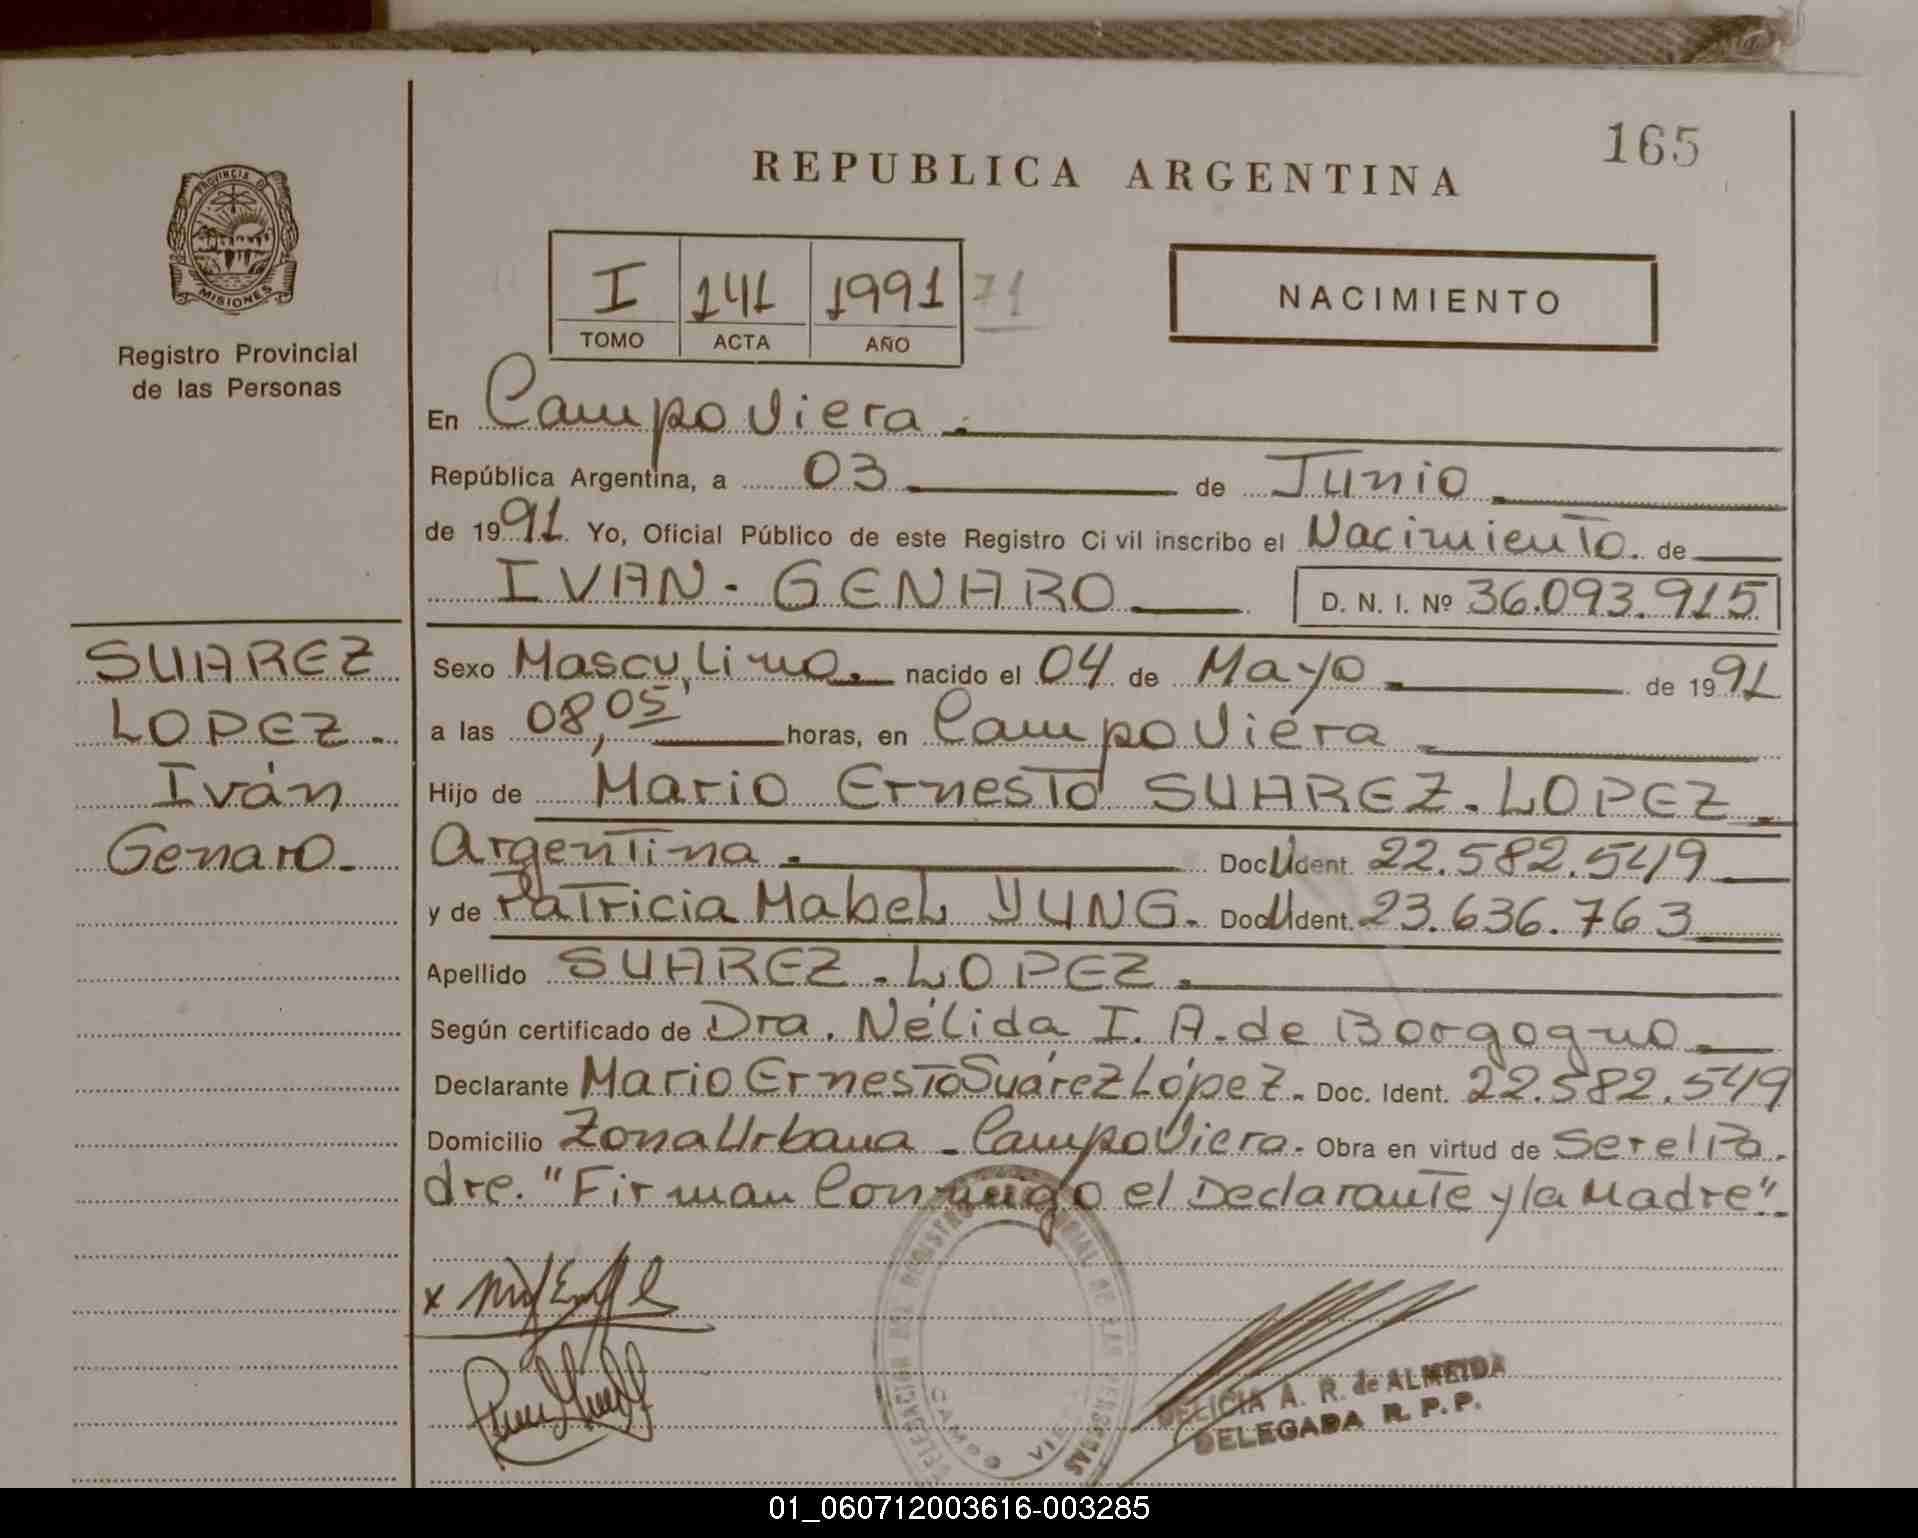 165
REPUBLICA ARGENTINA
PROVINCIA DE
MISIONES
Registro Provincial
de las Personas
I 141 1991 71
TOMO ACTA AÑO
NACIMIENTO
En Campo Viera.
República Argentina, a 03 de Junio
de 1991 Yo, Oficial Público de este Registro Civil inscribo el Nacimiento de
IVAN - GENARO D. N. I. Nº 36.093.915
SUAREZ
LOPEZ.
Iván
Genaro.
Sexo Masculino. nacido el 04 de Mayo de 1991
a las 08,05' horas, en Campo Viera
Hijo de Mario Ernesto SUAREZ-LOPEZ
Argentina. Doc. Ident. 22.582.549
y de Patricia Mabel YUNG. Doc. Ident. 23.636.763
Apellido SUAREZ-LOPEZ.
Según certificado de Dra. Nélida I. A. de Borgogno
Declarante Mario Ernesto Suárez López. Doc. Ident. 22.582.549
Domicilio Zona Urbana - Campo Viera. Obra en virtud de Ser el Pa-
dre. "Firman Conmigo el Declarante y la Madre".
DELEGACION DEL REGISTRO PROVINCIAL DE LAS PERSONAS
CAMPO VIERA
DELICIA A. R. de ALMEIDA
DELEGADA R. P. P.
01_060712003616-003285